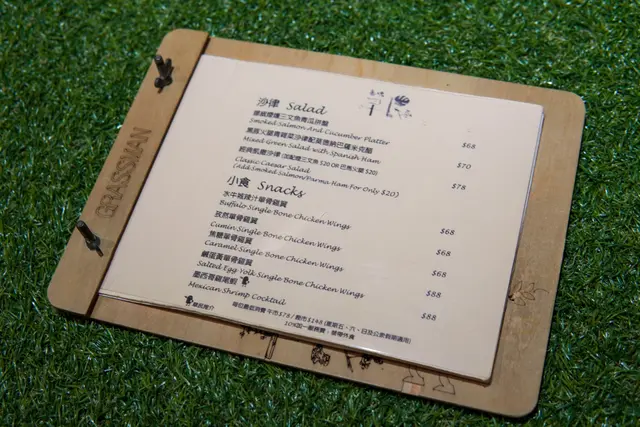 GRASSMAN
沙律 Salad
挪威煙燻三文魚青瓜拼盤
Smoked Salmon And Cucumber Platter $68
Mixed Green Salad with Spanish Ham $70
經典凱撒沙律 (另配煙三文魚 $20 OR 巴馬火腿 $20)
Classic Caesar Salad $78
(Add Smoked Salmon/Parma Ham For Only $20)
小食 Snacks
水牛城辣汁單骨雞翼
Buffalo Single Bone Chicken Wings $68
孜然單骨雞翼
Cumin Single Bone Chicken Wings $68
焦糖單骨雞翼
Caramel Single Bone Chicken Wings $68
鹹蛋黃單骨雞翼
Salted Egg Yolk Single Bone Chicken Wings $88
墨西哥雞尾蝦
Mexican Shrimp Cocktail $88
每位最低消費 午市$78 / 晚市$148 (星期五、六、日及公眾假期適用)